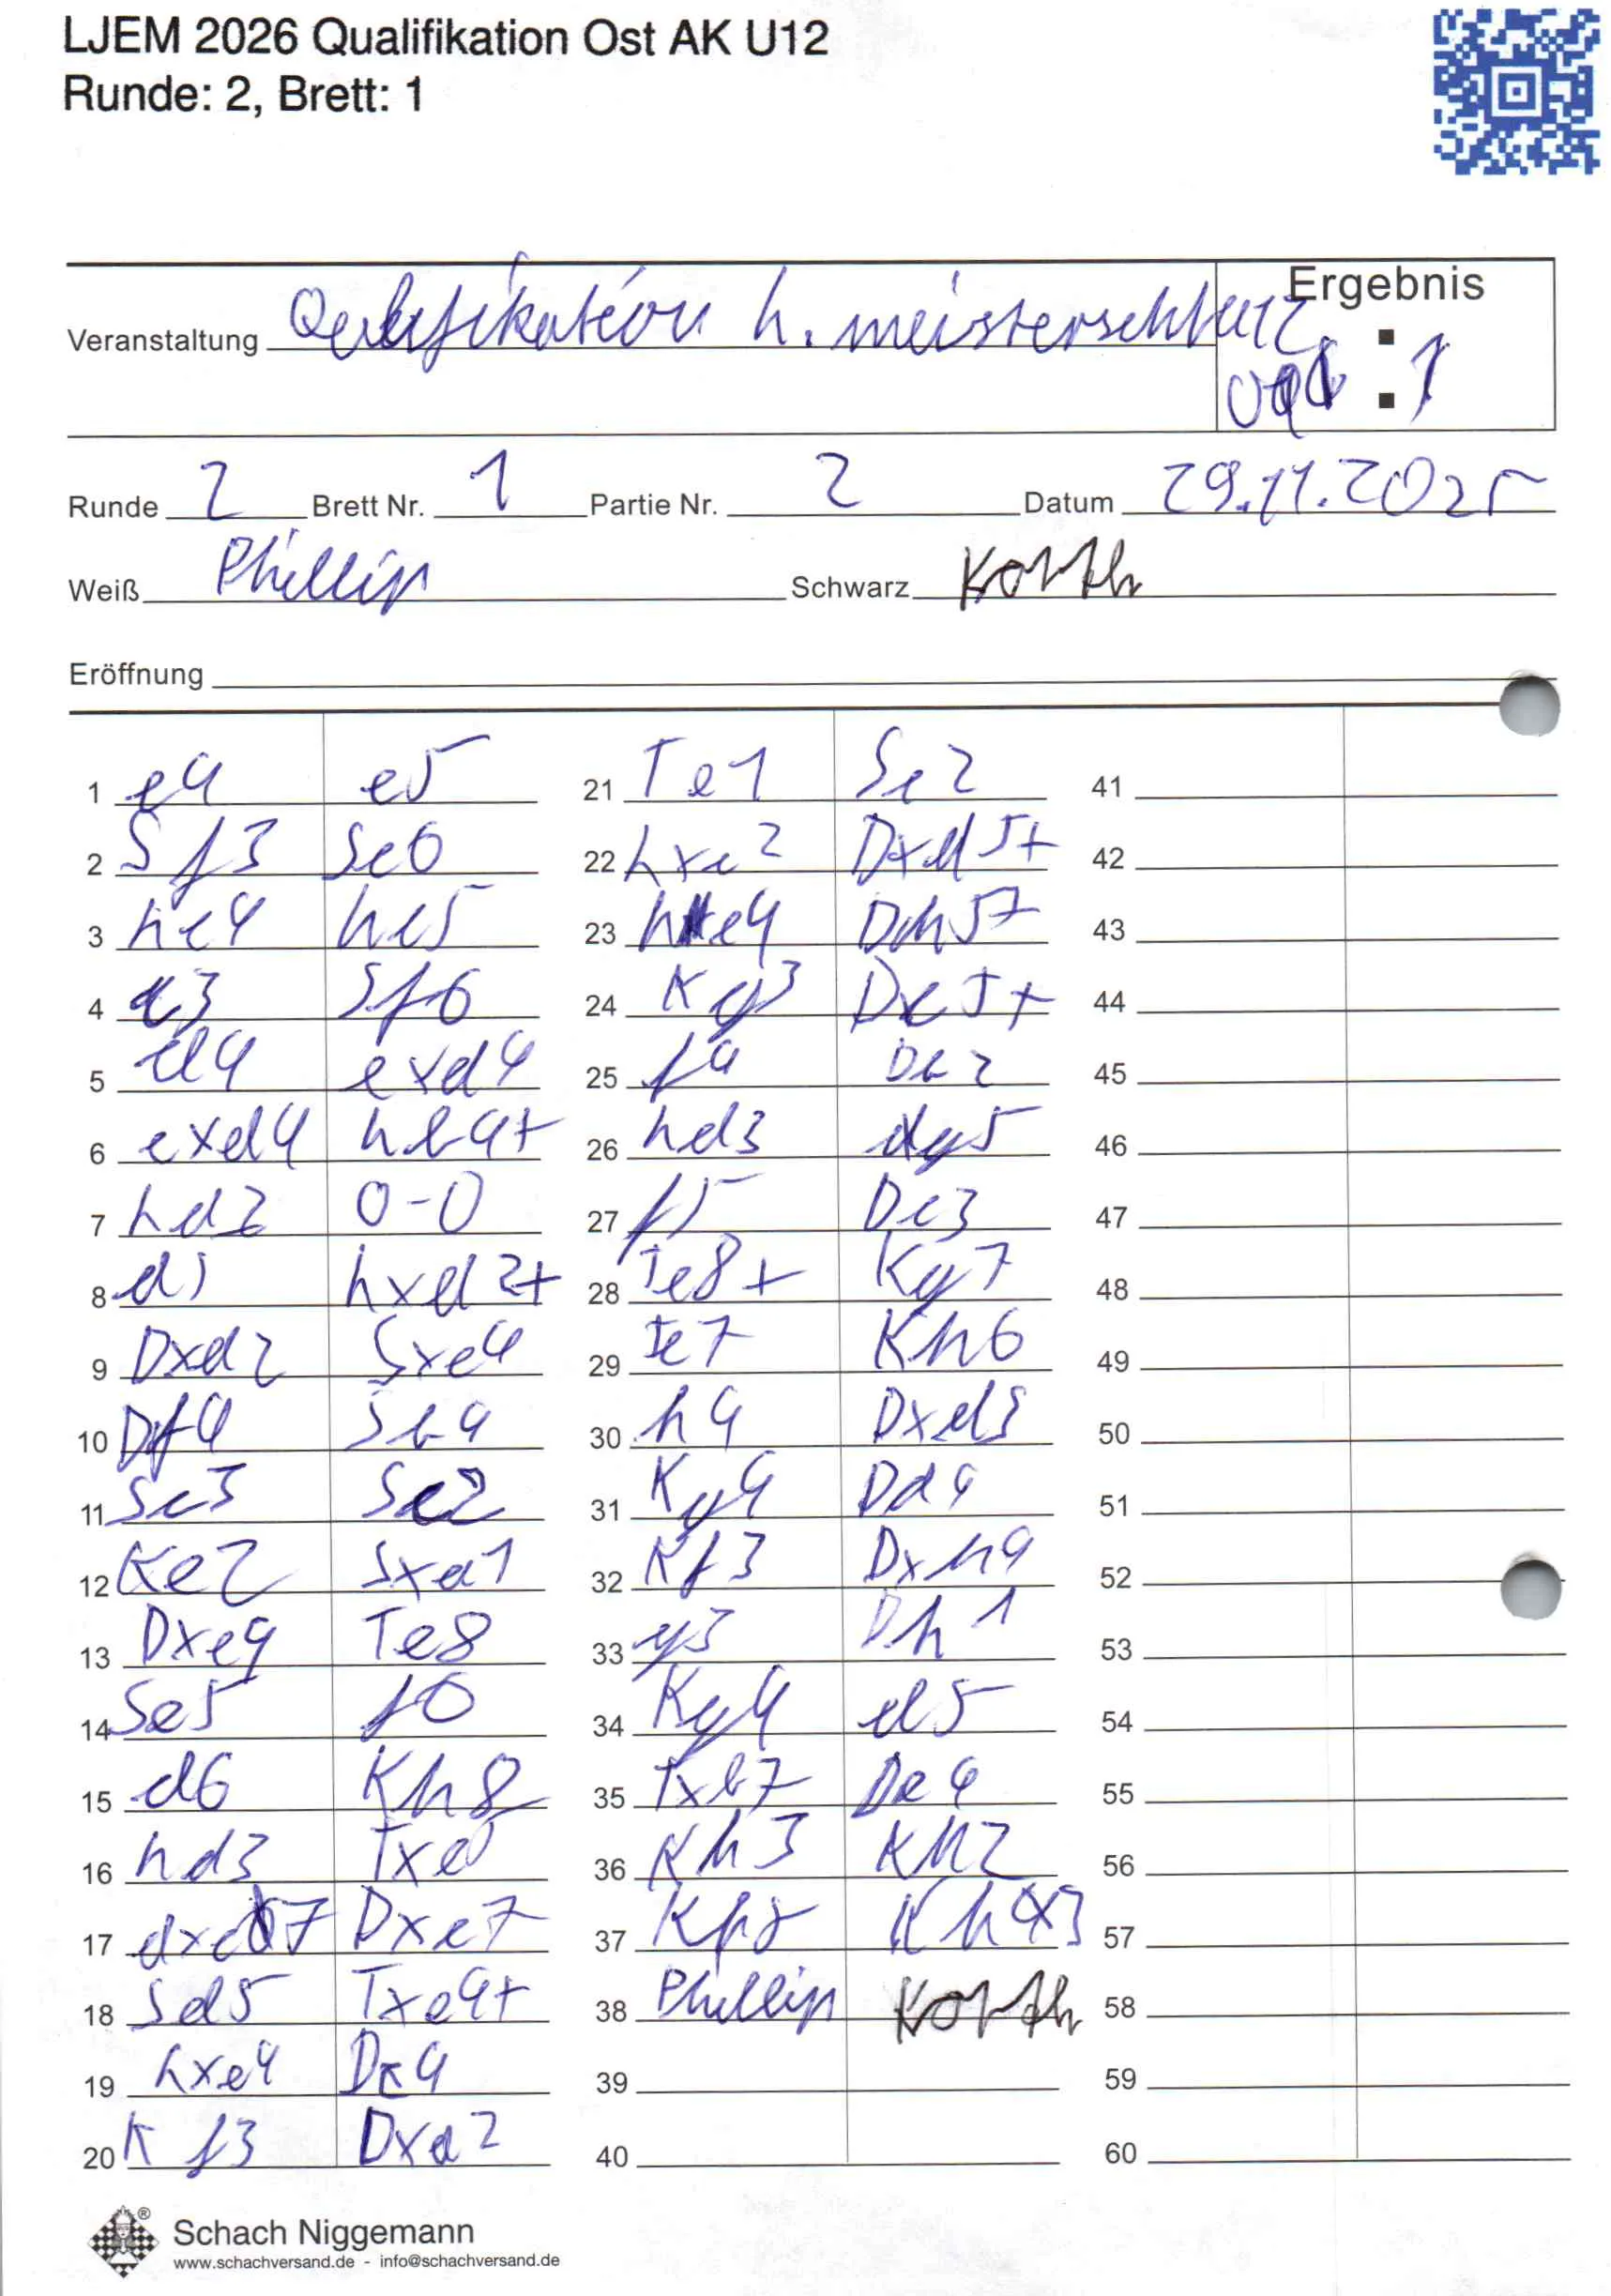 LJEM 2026 Qualifikation Ost AK U12
Runde: 2, Brett: 1
Ergebnis
Veranstaltung
: 1
Runde 2 Brett Nr. 1 Partie Nr. 2 Datum 29.11.2025
Weiß Phillip Schwarz Korth
Eröffnung
1 e4 e5
2 Sf3 Sc6
3 Lc4 Lc5
4 c3 Sf6
5 d4 exd4
6 cxd4 Lb4+
7 Ld2 0-0
8 d5 Lxd2+
9 Dxd2 Sxe4
10 Df4 Sb4
11 Sc3 Sc2
12 Ke2 Sxa1
13 Dxe4 Te8
14 Se5 f6
15 d6 Kh8
16 Ld3 Txe5
17 dxc7 Dxc7
18 Sd5 Txe4+
19 Lxe4 Dc4
20 Kf3 Dxa2
21 Te1 Sc2
22 Lxc2 Dxd5+
23 Le4 Dh5+
24 Kg3 Dc5+
25 f4 Db2
26 Ld3 g5
27 f5 Dc3
28 Te8+ Kg7
29 Te7 Kh6
30 h4 Dxd3
31 Kg4 Dd4
32 Kf3 Dxh4
33 g3 Dh1
34 Kg4 d5
35 Txb7 De4
36 Kh3
37
38 Phillip Korth
39
40
41
42
43
44
45
46
47
48
49
50
51
52
53
54
55
56
57
58
59
60
®
Schach Niggemann
www.schachversand.de - info@schachversand.de